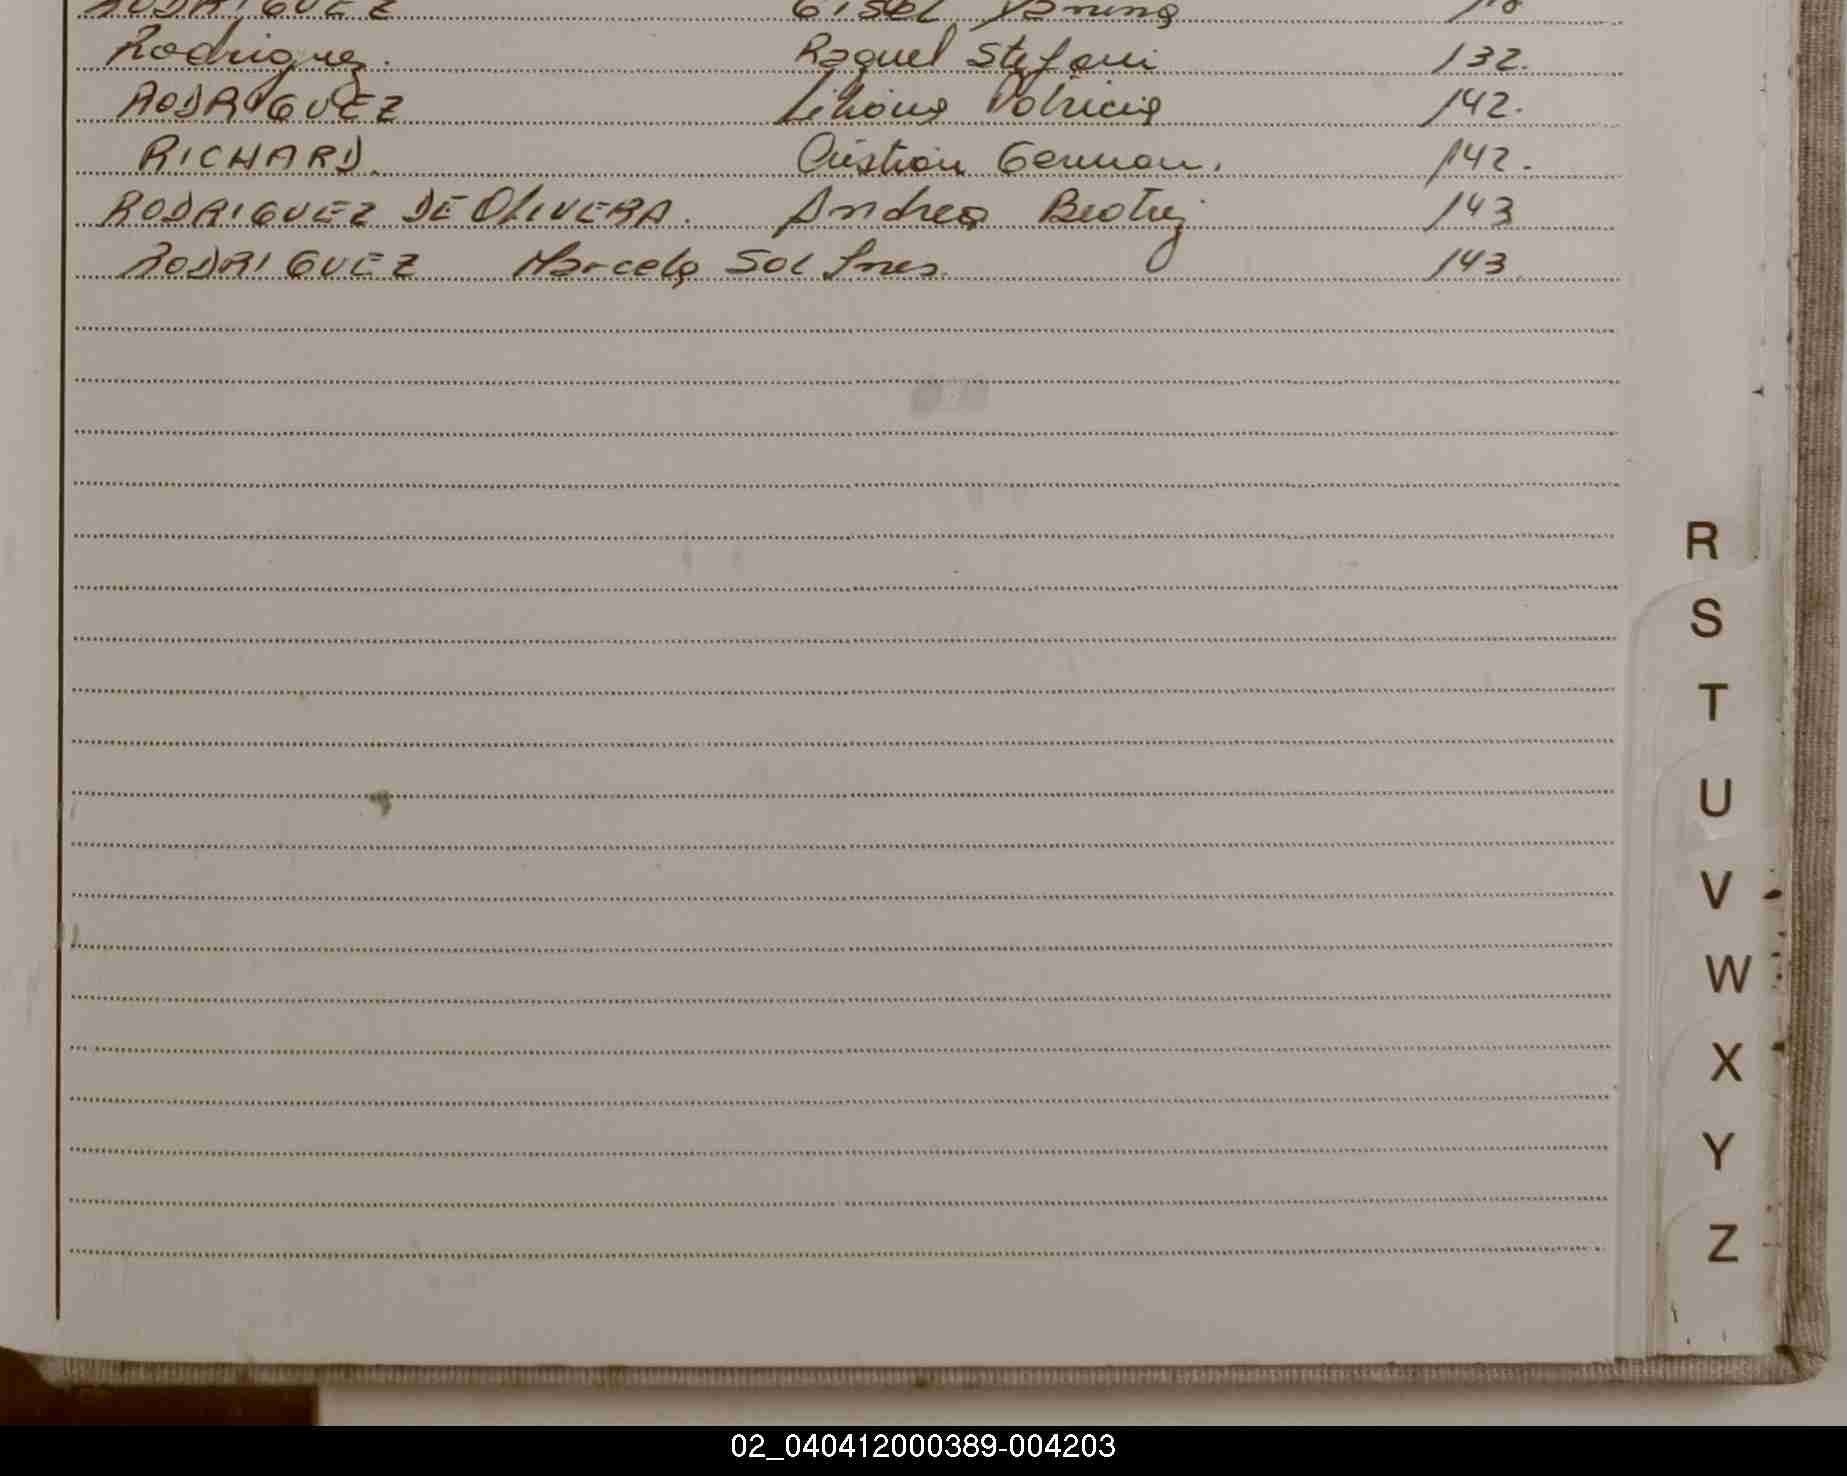 RODRIGUEZ Gisel Yanina
Rodriguez. Raquel Stefani 132.
RODRIGUEZ Liliana Patricia 142.
RICHARD. Cristian German. 142.
RODRIGUEZ DE OLIVERA. Andrea Beatriz 143
RODRIGUEZ Marcela Sol Ines. 143.
R
S
T
U
V
W
X
Y
Z
02_040412000389-004203